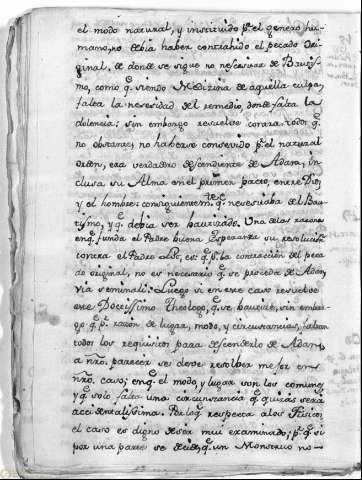 el modo natural, y instituido pª el genero hu-
mano, no debia haber contrahido el pecado Ori-
ginal, de donde se sigue no nesesitar de Bautis-
mo, como qᵉ siendo Medizina de aquella culpa,
falta la nesesidad del remedio, donde falta la
dolencia: sin embargo resuelve contra todos qᵉ
no obstante, no haberse consevido pʳ el natural
orden, era verdadero desendiente de Adam, in-
clusa su Alma en el primer pacto, entre Dios,
y el hombre: consiguientemᵗᵉ qᵉ nesesitaba del Bau-
tismo, y qᵉ debia ser bautizado. Una de las razones
enqᵉ funda el Padre buena Esperanza su resolucion
contra el Padre es: qᵉ pª la contraccion del peca
do original, no es necesario qᵉ se proceda de Adan
via seminali: Luego si en este caso resuelve
este Doctissimo Theologo, qᵉ se bautize, sin embar-
go qᵉ pʳ razon de lugar, modo, y circunstancias, faltan
todos los requisitos para desenderlo de Adam,
a nrô. parecer se debe resolver mejor en
nrô. caso; enqᵉ el modo, y lugar son los comunes
y qᵉ solo falta una circunstancia qᵉ quizás será
accidentalisima. Por loqᵉ respecta alos Fisicos,
el caso es digno de ser mui examinado; pʳ qᵉ si
por una parte se decide, qᵉ un Monstruo no-